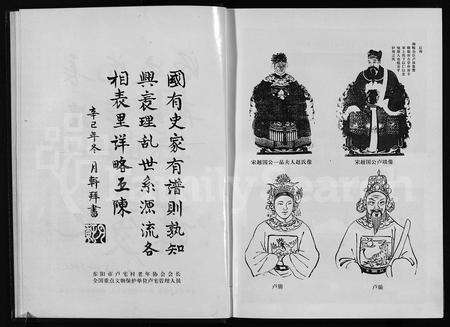 國有史家有譜則孰知
興衰理乱世系源流各
相表里详略互陳
辛巳年冬 月軒拜書
东阳市卢宅村老年协会会长
全国重点文物保护单位卢宅管理人员
宋越国公一品夫人赵氏像
宋越国公卢琰像